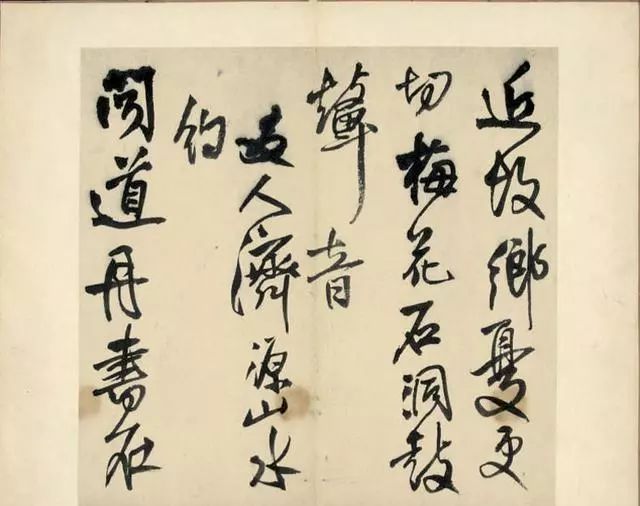 近故鄉憂更
切梅花石洞鼓
鼙音
友人濟源山水
約
聞道丹書在